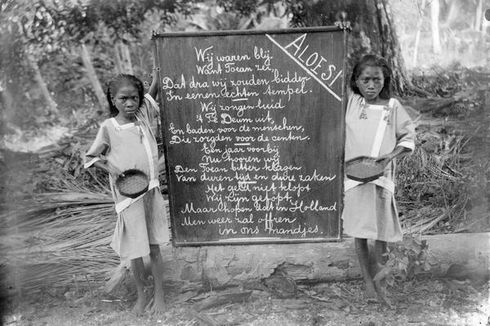 ALOESI
Wij waren blij
Want Toean zei,
Dat dra wij zouden bidden
In eenen echten tempel.
Wij zongen luid
't Te Deum uit,
En baden voor de menschen,
Die zorgden voor de centen.
Een jaar voorbij
Nu hooren wij
Den Toean bitter klagen
Van duren tijd en dure zaken
Het geld niet klopt
Wij zijn gefopt.
Maar 'k hopen dat in Holland
Men weer zal offren
in ons mandjes.